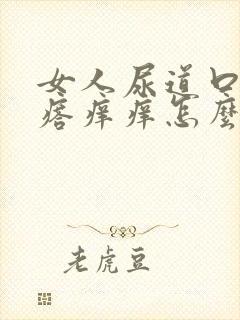 女人尿道口
痞痒痒怎麼
老虎豆